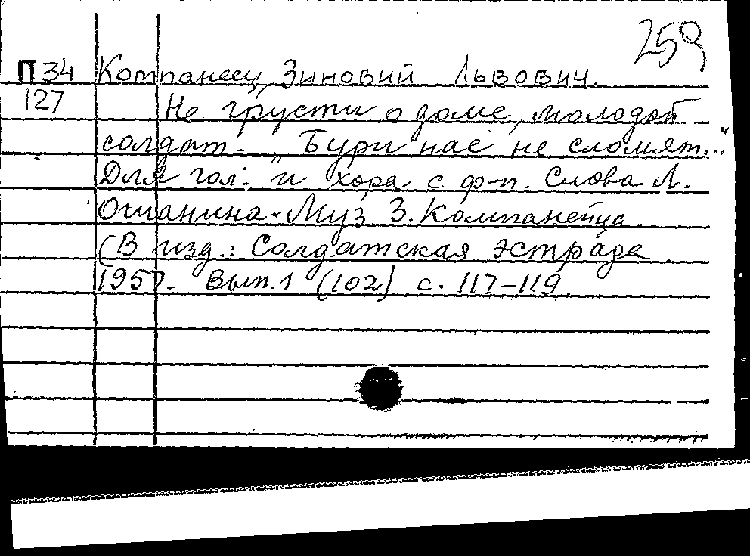 259
П 34 Компанеец, Зиновий Львович.
127 Не грусти о доме, молодой
солдат. „Бури нас не сломят..."
Для гол. и хора с ф-п. Слова Л.
Ошанина. Муз З. Компанейца.
(В изд.: Солдатская эстрада
1957. Вып. 1 (102) с. 117-119.